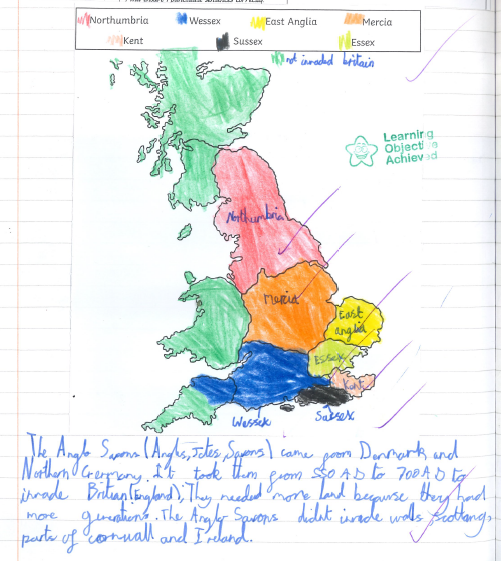 Northumbria Wessex East Anglia Mercia
Kent Sussex Essex
not invaded britain
Learning
Objective
Achieved
Northumbria
Mercia
East
anglia
Essex
Kent
Wessex
Sussex
The Anglo Saxons (Angles, Jutes, Saxons) came from Denmark and
Northern Germany. It took them from 550 AD to 700 AD to
invade Britian (England). They needed more land because they had
more generations. The Anglo Saxons didnt invade wales, scotland,
parts of cornwall and Ireland.